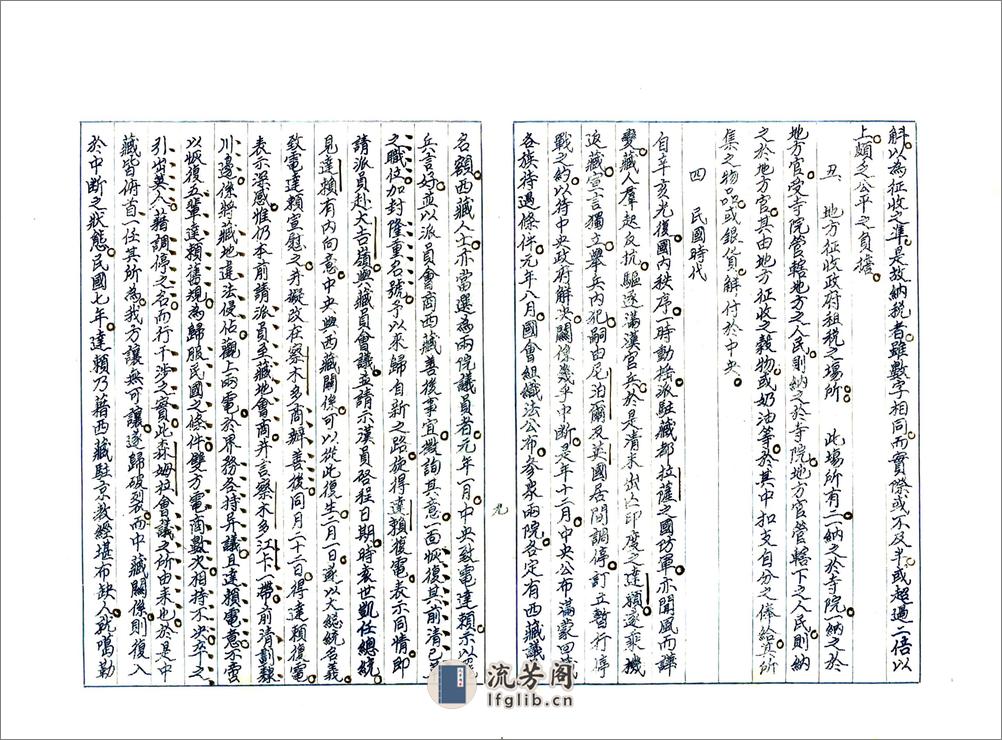 斛以為征收之準是故納稅者雖數字相同而實際或不及半或超過一倍以
上頗乏公平之負擔
丑、地方征收政府租稅之場所 此場所有二一納之於寺院一納之於
地方官受寺院管轄地方之人民則納之於寺院地方官管轄下之人民則納
之於地方官其由地方征收之穀物或奶油等於其中扣支自分之俸給其所
集之物品或銀貨解付於中央
四 民國時代
自辛亥光復國內秩序一時動搖派駐藏都拉薩之國防軍亦聞風而譁
變藏人羣起反抗驅逐滿漢官兵於是清末出亡印度之達賴遂乘機
返藏宣言獨立舉兵內犯嗣由尼泊爾及英國居間調停訂立暫行停
戰之約以待中央政府解決關係幾乎中斷是年十二月中央公布滿蒙回藏
各族待遇條件元年八月國會組織法公布參眾兩院各定有西藏議
九
名額西藏人士亦當選為兩院議員者元年一月中央致電達賴示以
兵言好並以派員會商西藏善後事宜徵詢其意一面恢復其前清已革
之職位加封隆重名號予以來歸自新之路旋得達賴復電表示同情即
請派員赴大吉嶺與藏員會議並請示漢員啓程日期時袁世凱任總統
見達賴有內向意中央與西藏關係可以從此復生二月一日遂以大總統名義
致電達賴宣慰之并擬改在察木多商辦善後同月二十三日得達賴復電
表示深感惟仍本前請派員至藏地會商并言察木多江卡一帶前清劃隸
川邊係將藏地違法侵佔觀上兩電於界務各持异議且達賴電意不啻
以恢復五輩達賴舊規為歸服民國之條件雙方電商數次相持不決卒之
引岀英人藉調停之名而行干涉之實此森姆拉會議之所由來也於是中
藏皆俯首一任其所為我方讓無可讓遂歸破裂而中藏關係則復入
於中斷之狀態民國七年達賴乃藉西藏駐京教經堪布缺人就噶勒
流芳阁
lfglib.cn